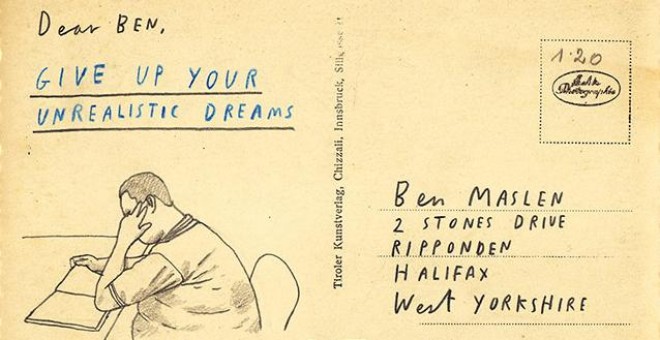 Dear BEN,
GIVE UP YOUR
UNREALISTIC DREAMS
Tiroler Kunstverlag, Chizzali, Innsbruck,
1.20
Ben MASLEN
2 STONES DRIVE
RIPPONDEN
HALIFAX
West YORKSHIRE